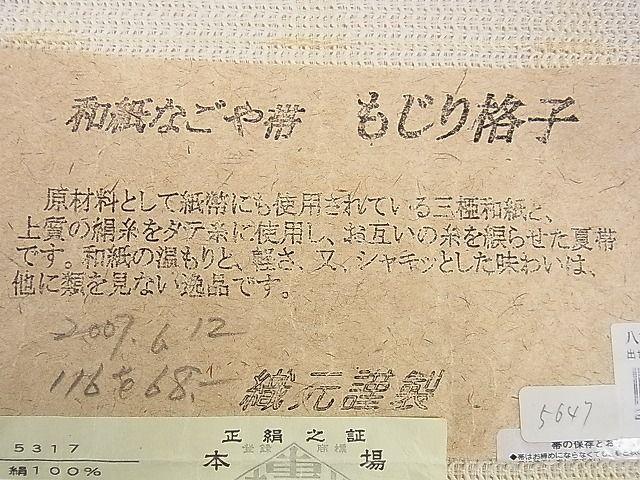 和紙なごや帯 もじり格子
原材料として紙幣にも使用されている三椏和紙と、
上質の絹糸をタテ糸に使用し、お互いの糸を綟らせた夏帯
です。和紙の温もりと、軽さ、又、シャキッとした味わいは、
他に類を見ない逸品です。
2007. 6. 12
116 68.-
織元謹製
5317
絹100%
正絹之証
登録 商標
本 場
5647
八
出
帯の保存とお
◆帯はお締めにならなくても、